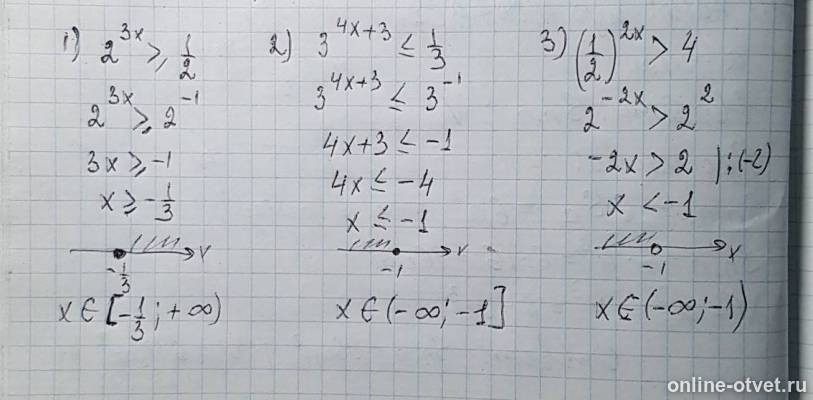 1) 2^{3x} ≥ 1/2
2^{3x} ≥ 2^{-1}
3x ≥ -1
x ≥ -1/3
x
-1/3
x ∈ [-1/3; +∞)
2) 3^{4x+3} ≤ 1/3
3^{4x+3} ≤ 3^{-1}
4x+3 ≤ -1
4x ≤ -4
x ≤ -1
x
-1
x ∈ (-∞; -1]
3) (1/2)^{2x} > 4
2^{-2x} > 2^2
-2x > 2 ) : (-2)
x < -1
x
-1
x ∈ (-∞; -1)
online-otvet.ru